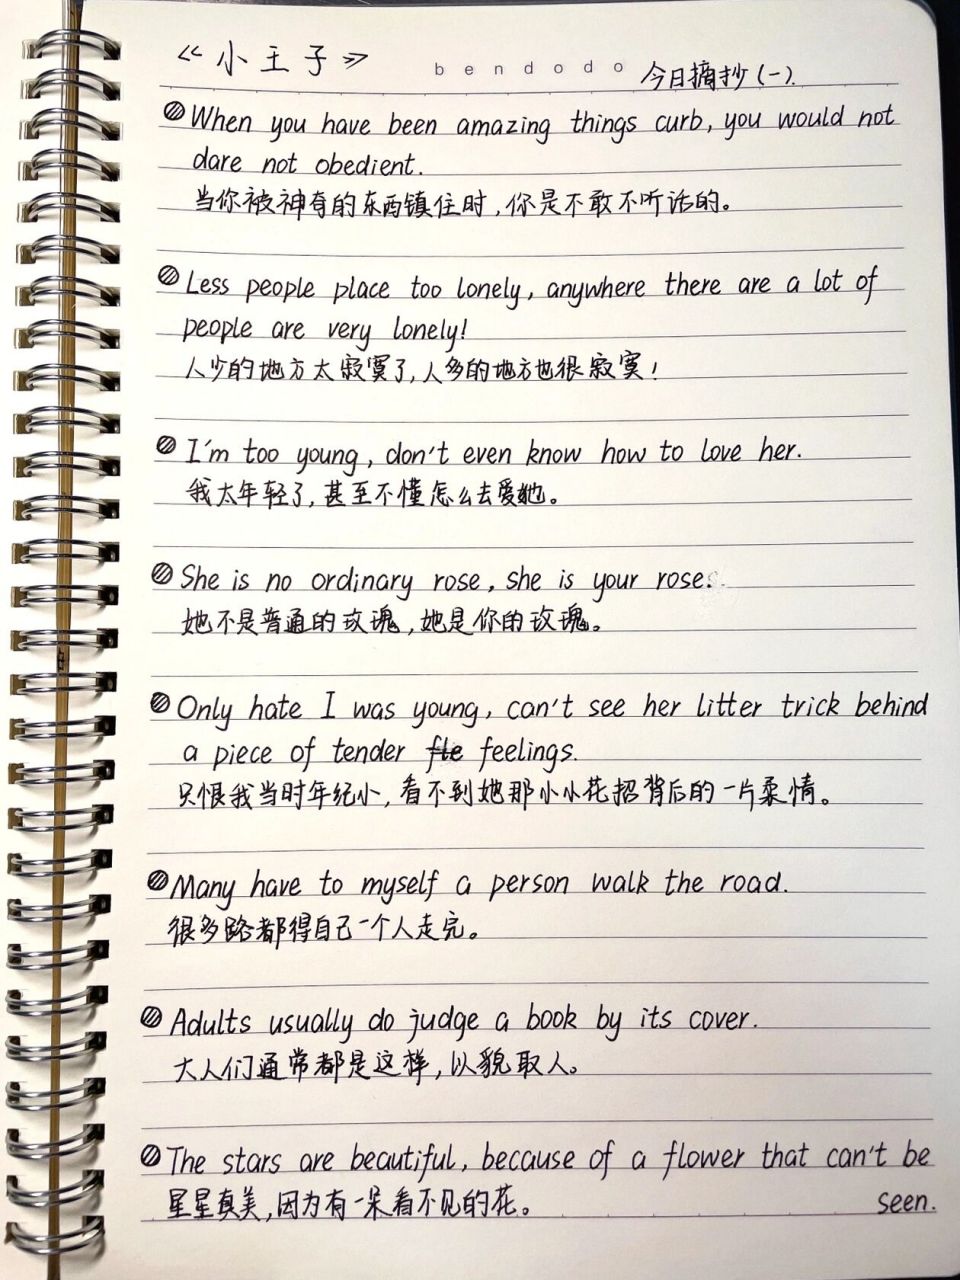 《小王子》
bendodo
今日摘抄(一).
When you have been amazing things curb, you would not
dare not obedient.
当你被神奇的东西镇住时,你是不敢不听话的。
Less people place too lonely, anywhere there are a lot of
people are very lonely!
人少的地方太寂寞了,人多的地方也很寂寞!
I'm too young, don't even know how to love her.
我太年轻了,甚至不懂怎么去爱她。
She is no ordinary rose, she is your rose.
她不是普通的玫瑰,她是你的玫瑰。
Only hate I was young, can't see her litter trick behind
a piece of tender fle feelings.
只恨我当时年纪小,看不到她那小小花招背后的一片柔情。
Many have to myself a person walk the road.
很多路都得自己一个人走完。
Adults usually do judge a book by its cover.
大人们通常都是这样,以貌取人。
The stars are beautiful, because of a flower that can't be
seen.
星星真美,因为有一朵看不见的花。